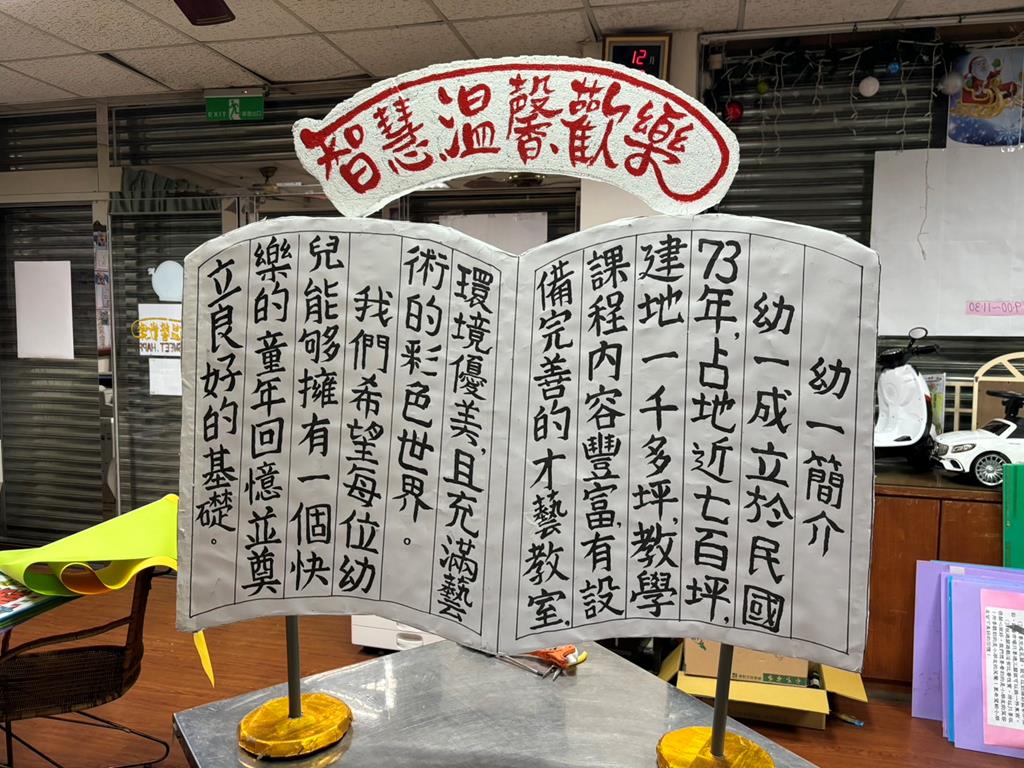 智慧、溫馨、歡樂
幼一簡介
幼一成立於民國
73年，占地近七百坪，
建地一千多坪，教學
課程內容豐富，有設
備完善的才藝教室，
環境優美，且充滿藝
術的彩色世界。
我們希望每位幼
兒能夠擁有一個快
樂的童年回憶並奠
立良好的基礎。
12月
EXIT
9:00~11:30